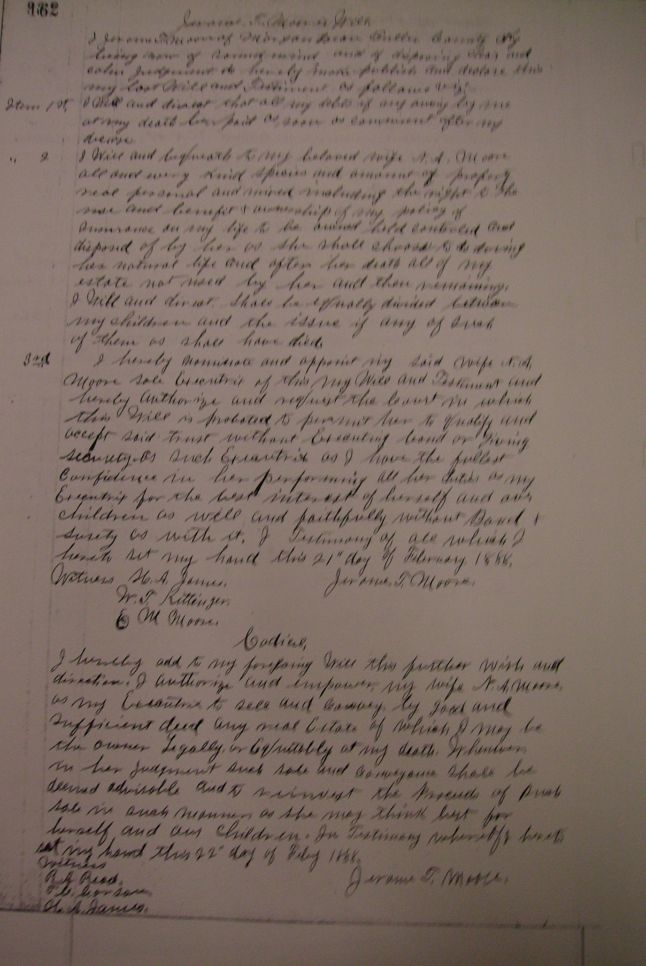 362
Jerome T. Moore's Will
I Jerome T. Moore of Butler County Ky
being now of sound mind and of disposing and
calm Judgment do hereby make publish and declare this
my last Will and Testament as follows viz:
Item 1st. I Will and direct that all my debts if any owing by me
at my death be paid as soon as convenient after my
decease
" 2 I Will and bequeath to my beloved wife N. A. Moore
all and every kind species and amount of property
real personal and mixed including the right to the
use and benefit & ownership of my policy of
Insurance on my life to be owned held controled and
disposed of by her as she shall choose to do during
her natural life and after her death all of my
estate not used by her and then remaining,
I Will and direct, shall be equally divided between
my children and the issue if any of such
of them as shall have died.
3rd I hereby nominate and appoint my said wife N. A.
Moore sole Executrix of this my Will and Testament and
hereby Authorize and request the Court in which
this Will is probated to permit her to qualify and
accept said trust without Executing bond or giving
security as such Executrix as I have the fullest
Confidence in her performing all her duties as my
Executrix for the best interest of herself and our
children as well and faithfully without Bond &
surety as with it. I Testimony of all which I
hereto set my hand this 21" day of February 1888.
Witness H. A. James. Jerome T. Moore.
W. T. Kittinger.
E M Moore.
Codicil,
I hereby add to my foregoing Will this further wish and
direction. I Authorize and empower, my wife N. A. Moore,
as my Executrix to sell and Convey, by good and
sufficient deed any real Estate of which I may be
the owner Legally or Equitably at my death. Whenever
in her Judgment such sale and Conveyance shall be
deemed advisable and to reinvest the proceeds of such
sale in such manner as she may think best for
herself and our Children. In Testimony whereof I hereto
set my hand this 22" day of Feby 1888.
Witness Jerome T. Moore.
Read.
H. A. James.